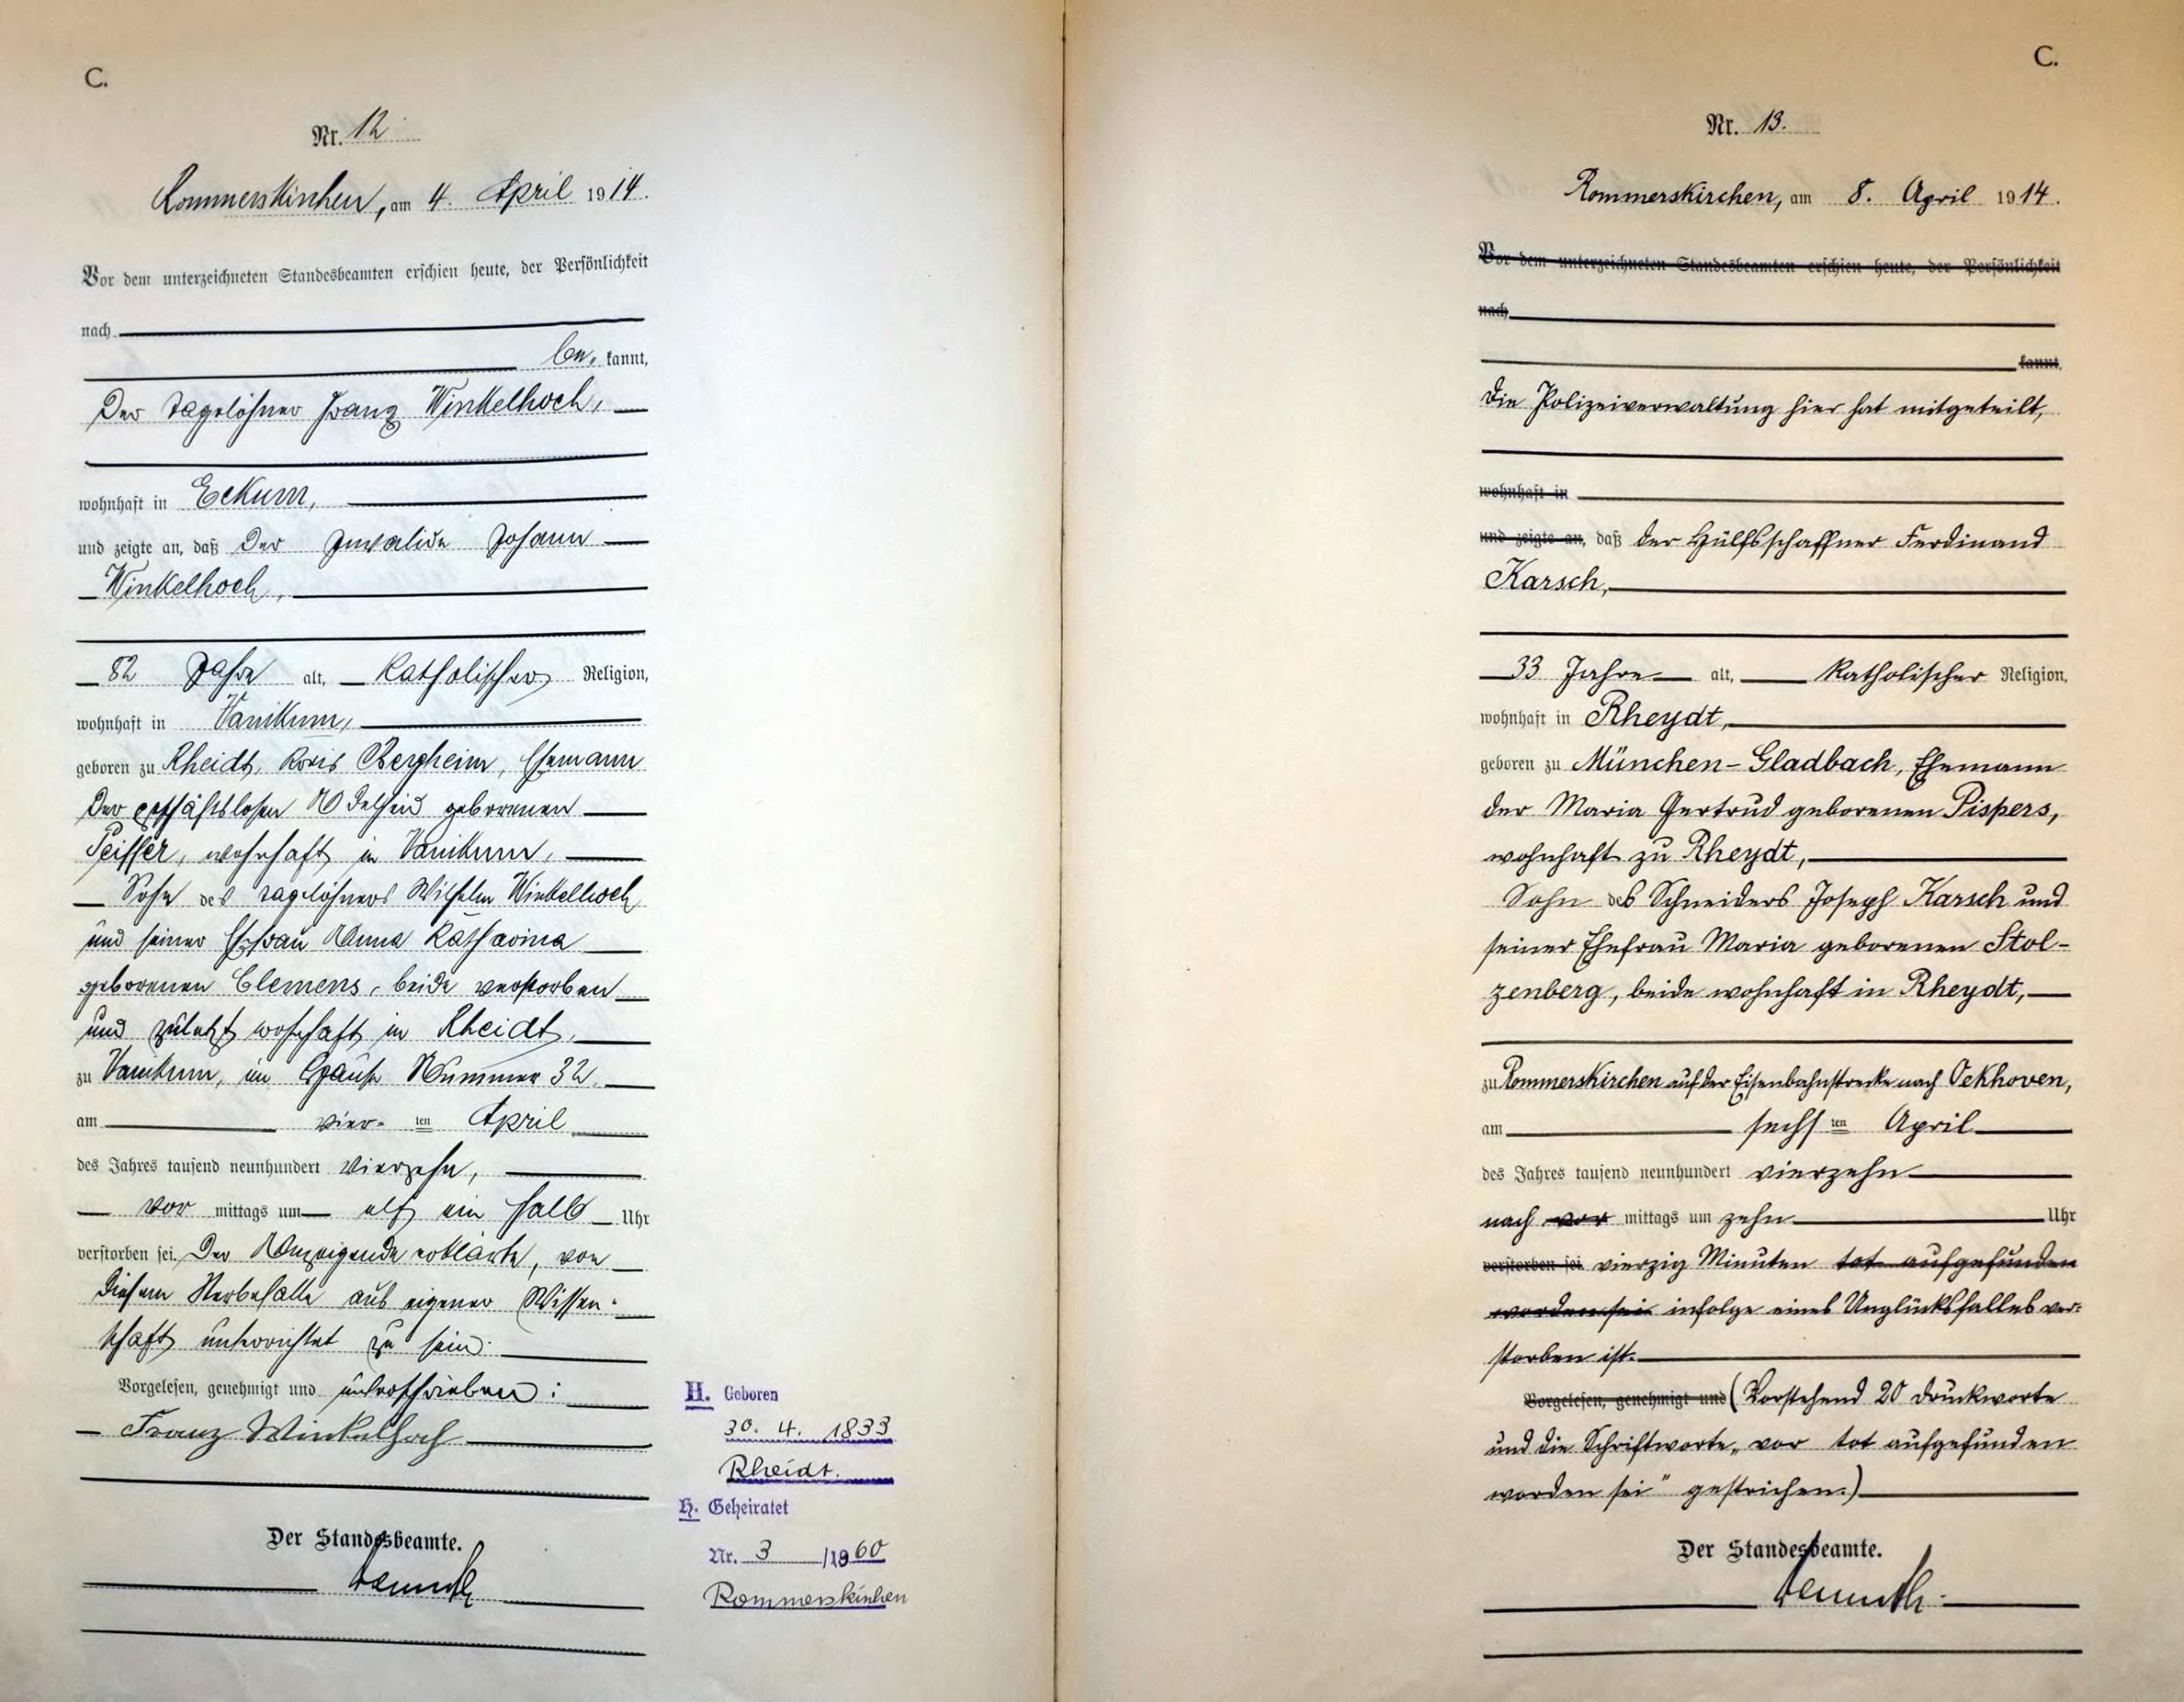 C.
Nr. 12
Rommerskirchen, am 4. April 1914.
Vor dem unterzeichneten Standesbeamten erschien heute, der Persönlichkeit
nach
be kannt,
der Tagelöhner Franz Winkelhoch,
wohnhaft in Eckum,
und zeigte an, daß der Invalide Johann
Winkelhoch,
82 Jahre alt, katholischer Religion,
wohnhaft in Vanikum,
geboren zu Rheidt, Kreis Bergheim, Ehemann
der geschäftslosen Adelheid geborenen
Peiffer, wohnhaft in Vanikum,
Sohn des Tagelöhners Wilhelm Winkelhoch
und seiner Ehefrau Anna Katharina
geborenen Clemens, beide verstorben
und zuletzt wohnhaft in Rheidt,
zu Vanikum, im Hause Nummer 32.
am vier- ten April
des Jahres tausend neunhundert vierzehn,
vor mittags um elf ein halb Uhr
verstorben sei. Der Anzeigende erklärte, von
diesem Sterbefalle aus eigener Wissen-
schaft unterrichtet zu sein.
Vorgelesen, genehmigt und unterschrieben:
Franz Winkelhoch
Der Standesbeamte.
H. Geboren
30. 4. 1833
Rheidt.
H. Geheiratet
Nr. 3 /1860
Rommerskirchen
C.
Nr. 13.
Rommerskirchen, am 8. April 1914.
Vor dem unterzeichneten Standesbeamten erschien heute, der Persönlichkeit
nach
kannt,
die Polizeiverwaltung hier hat mitgeteilt,
wohnhaft in
und zeigte an, daß der Hülfsschaffner Ferdinand
Karsch,
33 Jahre alt, katholischer Religion,
wohnhaft in Rheydt,
geboren zu München-Gladbach, Ehemann
der Maria Gertrud geborenen Pispers,
wohnhaft zu Rheydt,
Sohn des Schneiders Joseph Karsch und
seiner Ehefrau Maria geborenen Stol-
zenberg, beide wohnhaft in Rheydt,
zu Rommerskirchen auf der Eisenbahnstrecke nach Oekhoven,
am sechs ten April
des Jahres tausend neunhundert vierzehn
nach vor mittags um zehn Uhr
verstorben sei vierzig Minuten tot aufgefunden
worden sei infolge eines Unglücksfalles ver-
storben ist.
Vorgelesen, genehmigt und (Vorstehend 20 Druckworte
und die Schriftworte „vor tot aufgefunden
worden sei" gestrichen.)
Der Standesbeamte.